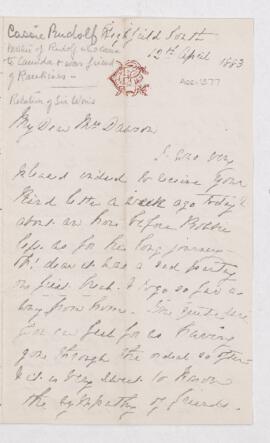 Cassie Rudolf Highfield South
Mother of Rudolf who came
to Canada & was friend
of Rankins —
12th April 1883
Relation of Sir Wms
My Dear Mrs Dawson
I was very
pleased indeed to receive your
kind letter a week ago today
about an hour before Robbie
left us for his long journey
dear it was a sad parting
on first to go so far a
way from home.
You can feel for us having
gone through the ordeal so often
& it is very sweet to know
the sympathy of friends.